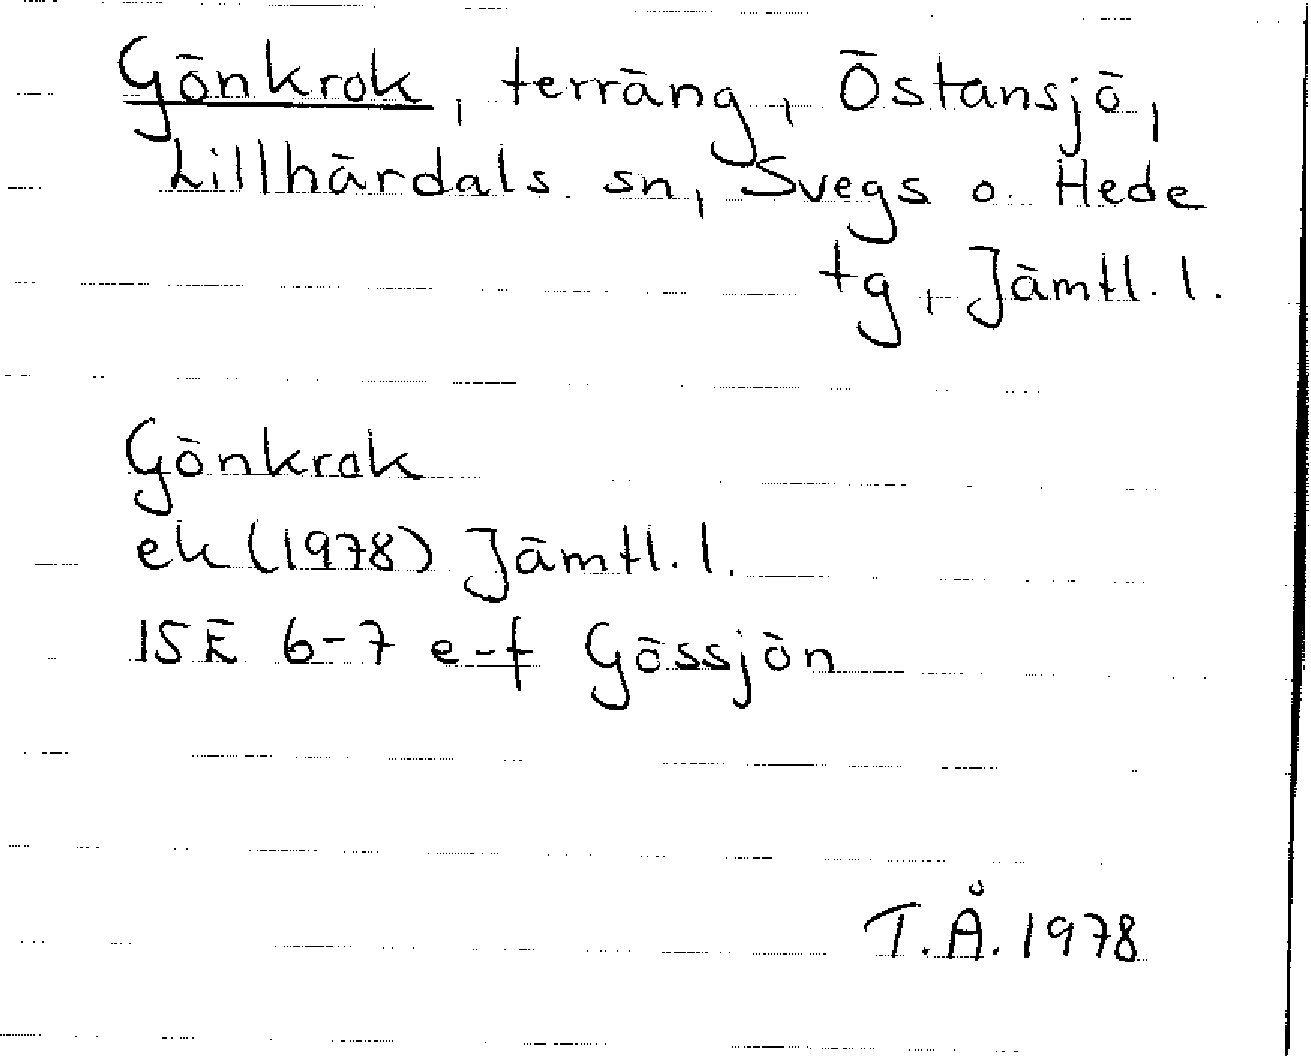 Gönkrok, terräng, Östansjö,
Lillhärdals sn, Svegs o. Hede
tg, Jämtl. l.
Gönkrok
ek (1978) Jämtl. l.
15E 6-7 e-f Gössjön
T.Å. 1978